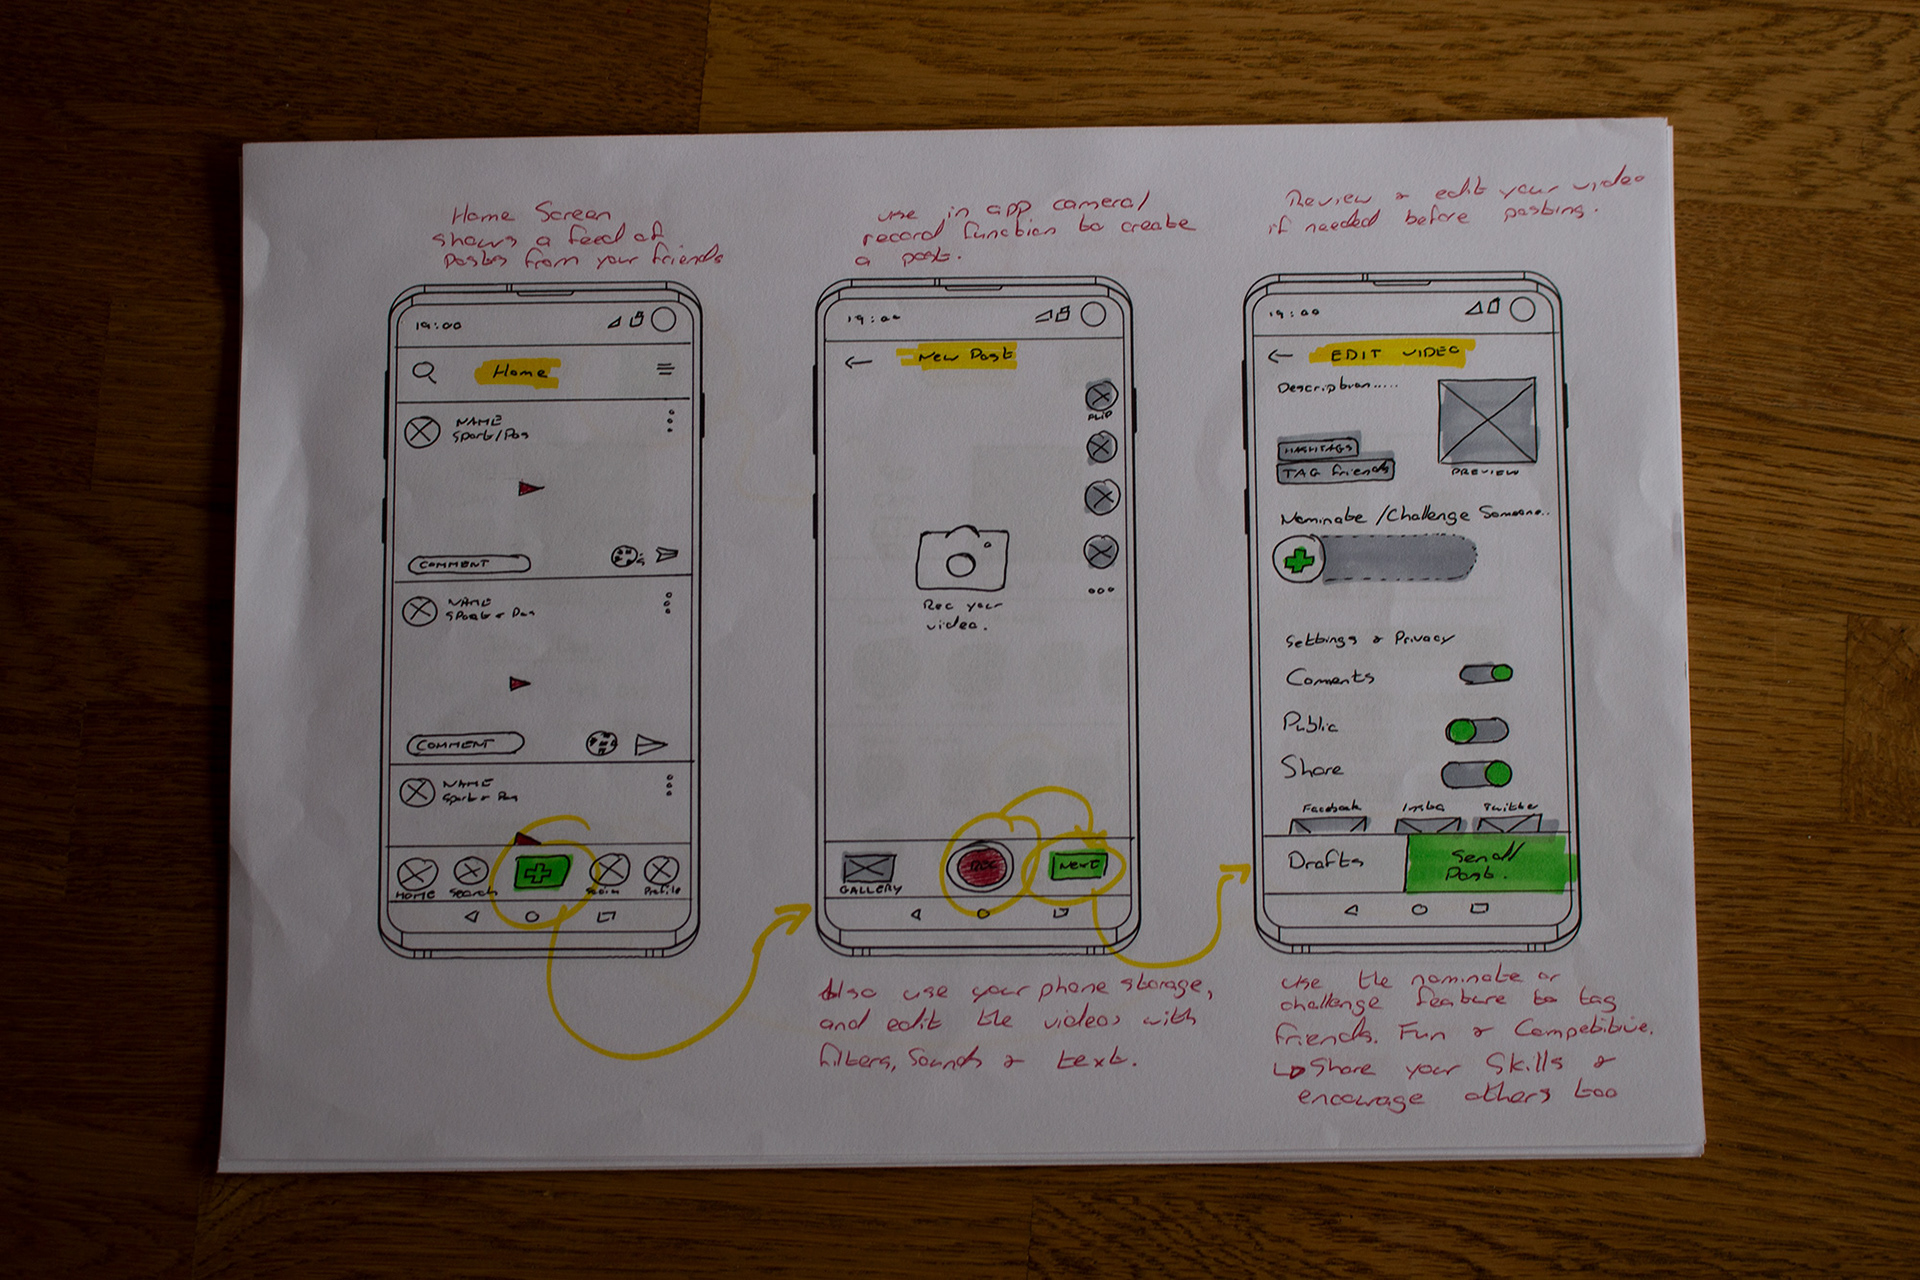 Home Screen
shows a feed of
posts from your friends
19:00
Home
NAME
Sport/Pos
COMMENT
NAME
Sport + Pos
COMMENT
NAME
Sport + Pos
HOME
Search
Profile
use in app camera/
record function to create
a post.
19:00
New Post
FLIP
Rec your
video.
GALLERY
REC
NEXT
Also use your phone storage,
and edit the videos with
filters, Sounds & text.
Review & edit your video
if needed before posting.
19:00
EDIT VIDEO
Description.....
HASHTAGS
TAG friends
PREVIEW
Nominate /Challenge Someone..
Settings & Privacy
Coments
Public
Share
Facebook
Insta
Twitter
Drafts
Send/
Post.
use the nominate or
challenge feature to tag
friends. Fun & Competitive.
Share your Skills &
encourage others too